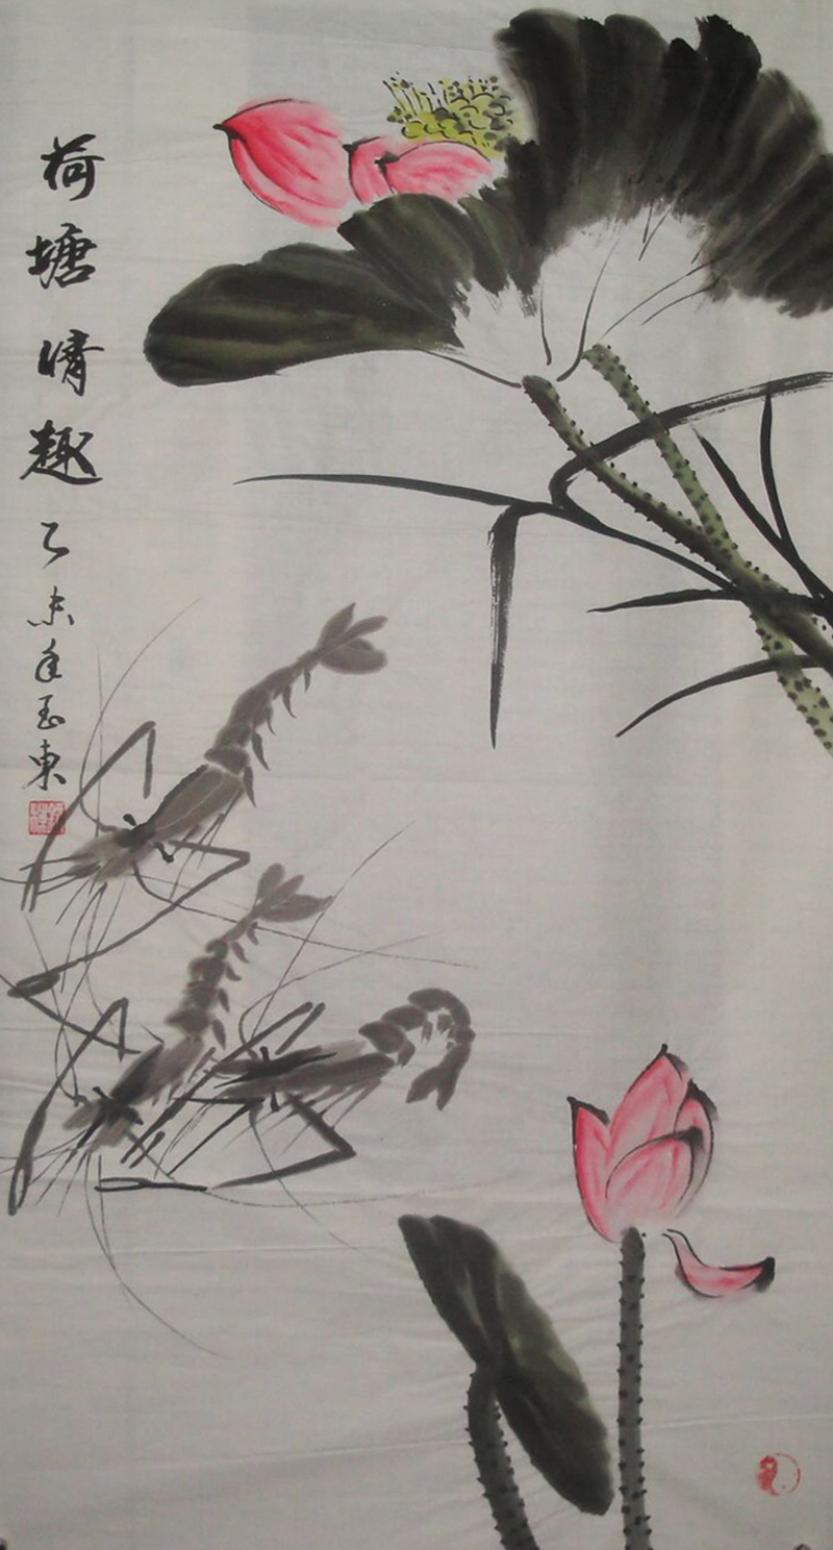 荷塘情趣乙未年玉東